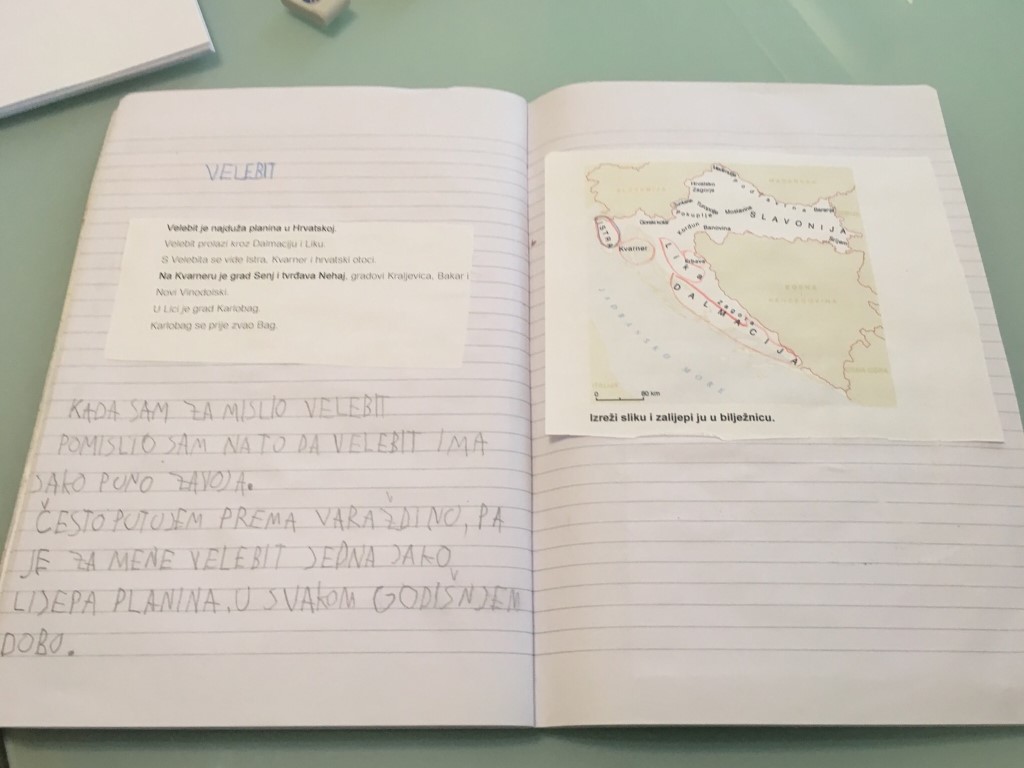 VELEBIT
Velebit je najduža planina u Hrvatskoj.
Velebit prolazi kroz Dalmaciju i Liku.
S Velebita se vide Istra, Kvarner i hrvatski otoci.
Na Kvarneru je grad Senj i tvrđava Nehaj, gradovi Kraljevica, Bakar i
Novi Vinodolski.
U Lici je grad Karlobag.
Karlobag se prije zvao Bag.
KADA SAM ZA MISLIO VELEBIT
POMISLIO SAM NA TO DA VELEBIT IMA
JAKO PUNO ZAVOJA.
ČESTO PUTUJEM PREMA VARAŽDINO, PA
JE ZA MENE VELEBIT JEDNA JAKO
LIJEPA PLANINA, U SVAKOM GODIŠNJEM
DOBO.
Hrvatsko
Zagorje
Podravina
Turopolje
Moslavina
Baranja
SLAVONIJA
Srijem
Pokuplje
Gorski kotar
Kordun
Banovina
ISTRA
Kvarner
Krbava
Lika
Zagora
DALMACIJA
JADRANSKO MORE
0
80 km
Izreži sliku i zalijepi ju u bilježnicu.